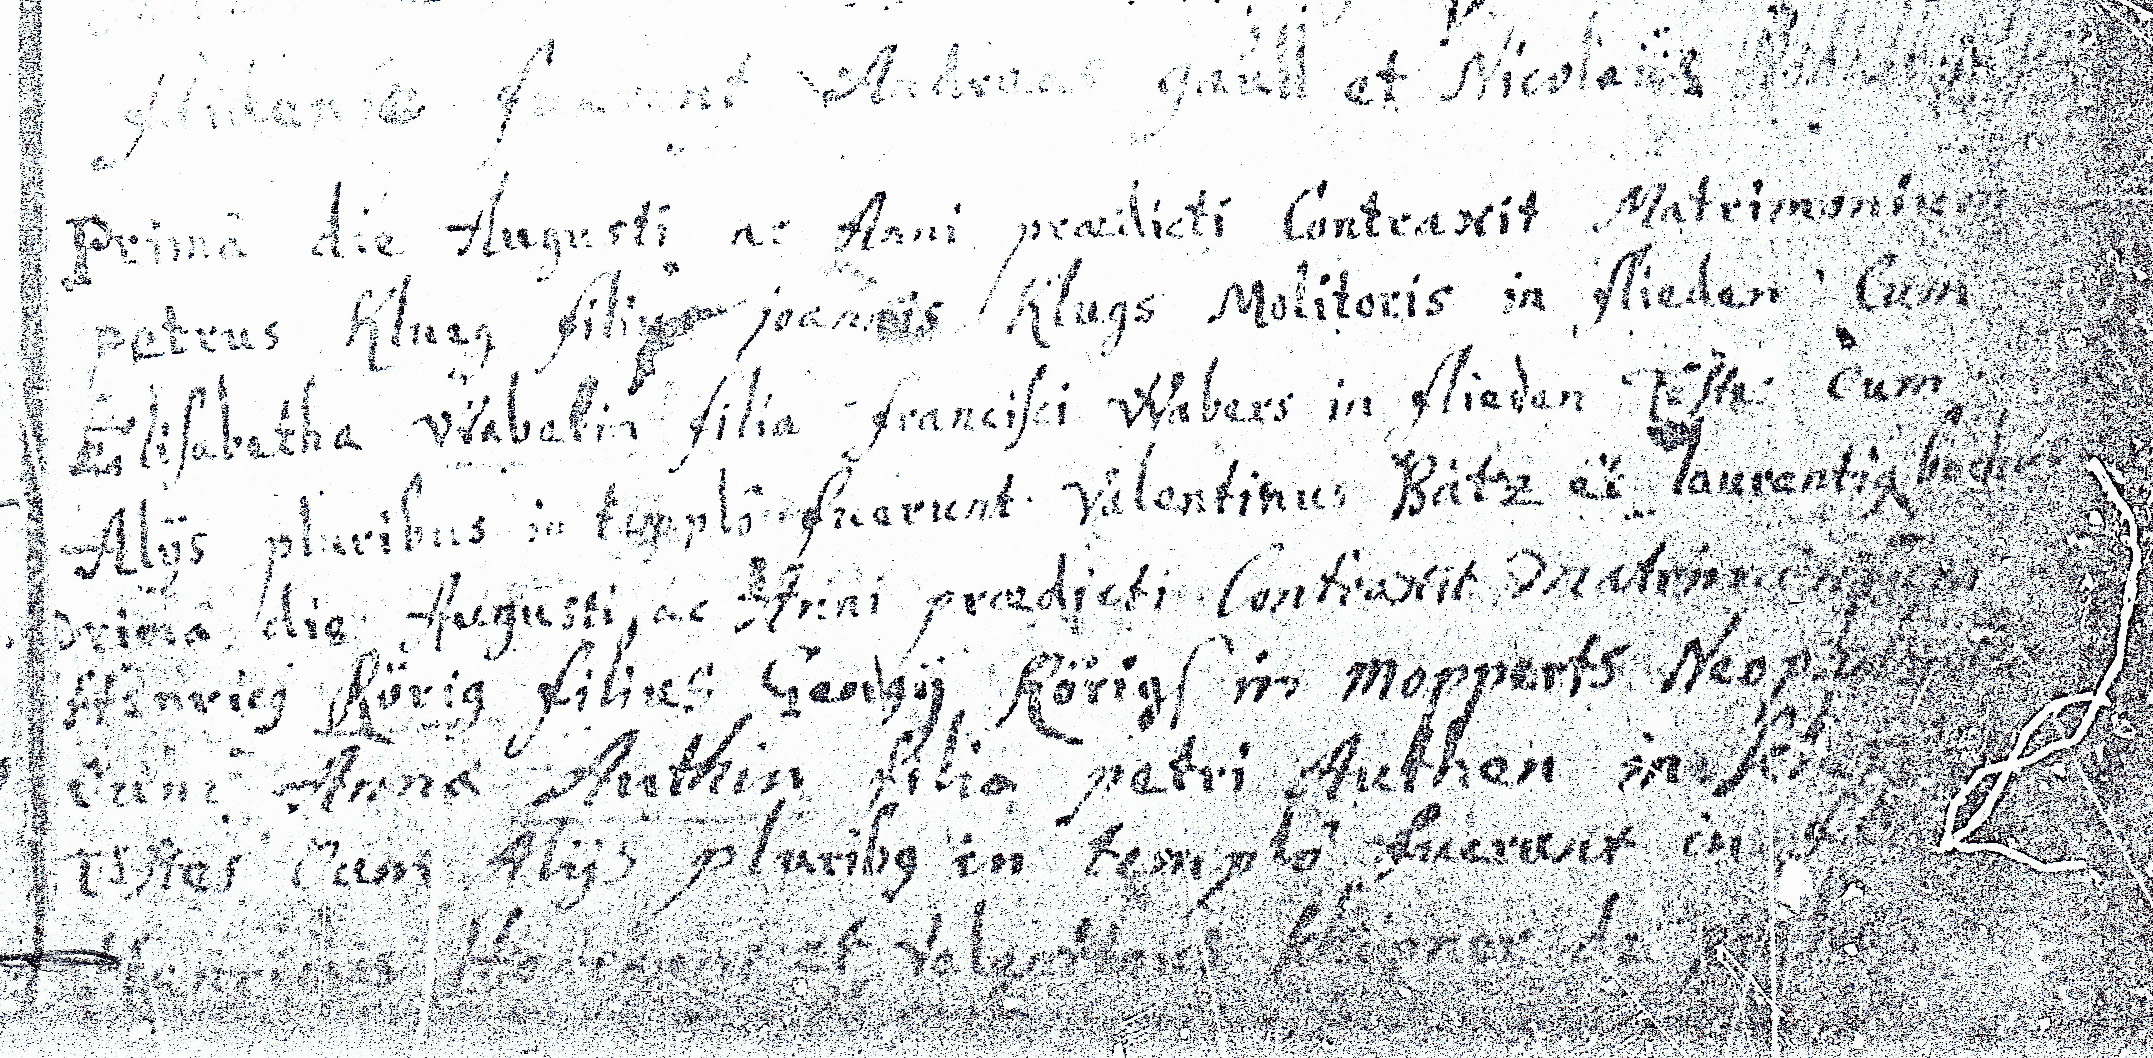 flidensis fuerunt Andreas gaull et Nicolaus
Prima die Augusti ac Anni prædicti Contraxit Matrimonium
petrus Klueg filius joannis Klugs Molitoris in flieden Cum
Elisabetha Wëberin filia francisci Webers in flieden Teste Cum
Alijs pluribus in templo fuerunt Valentinus Bätz et laurentig
prima die Augusti ac Anni prædicti Contraxit Matrimonium
Henricg Rörig filius Georgij Rörigs in mopperts
Cum Anna Authin filia petri Authen in
Testes Cum Alijs pluribg in templo fuerunt in
et Valentinus de